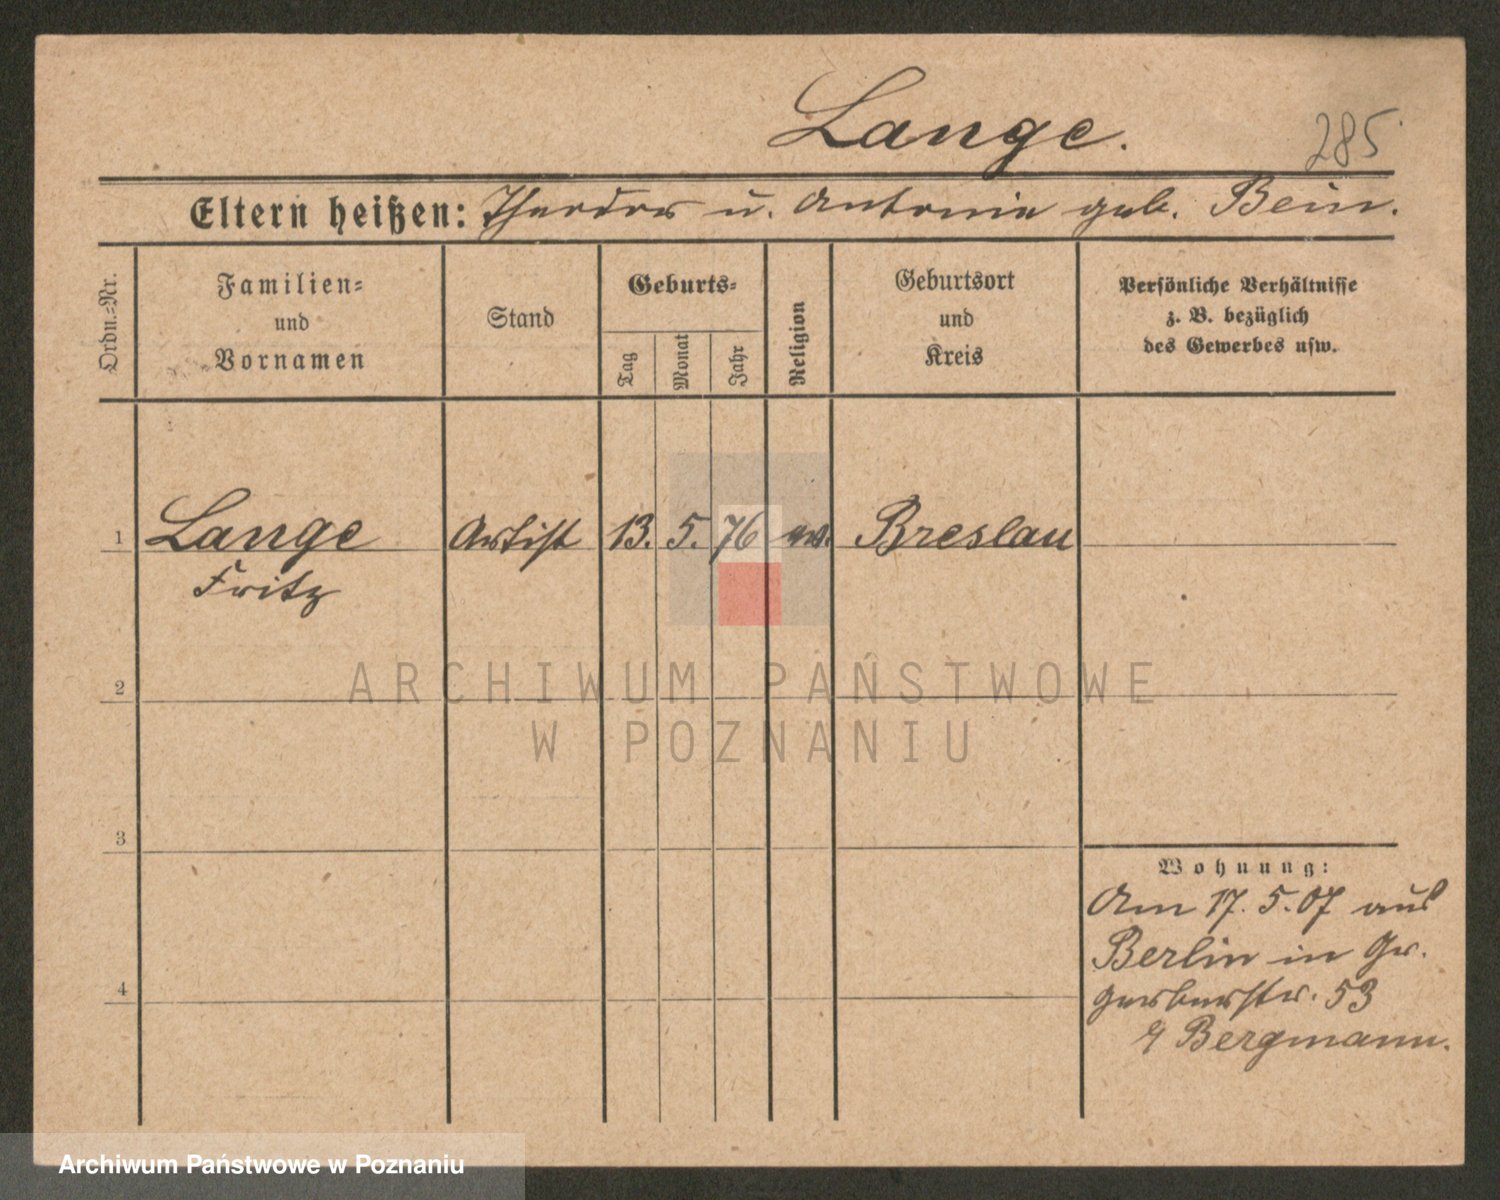 Lange.
285
Eltern heißen: Theodor u. Antonie geb. Bein.
Ordn.-Nr.
Familien-
und
Vornamen
Stand
Geburts-
Tag
Monat
Jahr
Religion
Geburtsort
und
Kreis
Persönliche Verhältnisse
z. B. bezüglich
des Gewerbes usw.
1 Lange Artist 13. 5. 76 ev. Breslau
Fritz
ARCHIWUM PAŃSTWOWE
W POZNANIU
2
3
4
Wohnung:
Am 17. 5. 07 aus
Berlin in Gr.
Gerberstr. 53
Bergmann.
Archiwum Państwowe w Poznaniu